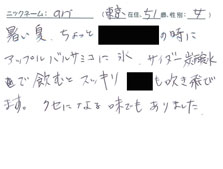 ニックネーム: ari (東京在住, 51歳, 性別: 女)
暑い夏、ちょっと の時に
アップルバルサミコに氷、サイダー炭酸水
で飲むとスッキリ も吹き飛び
ます。クセになる味でもありました。